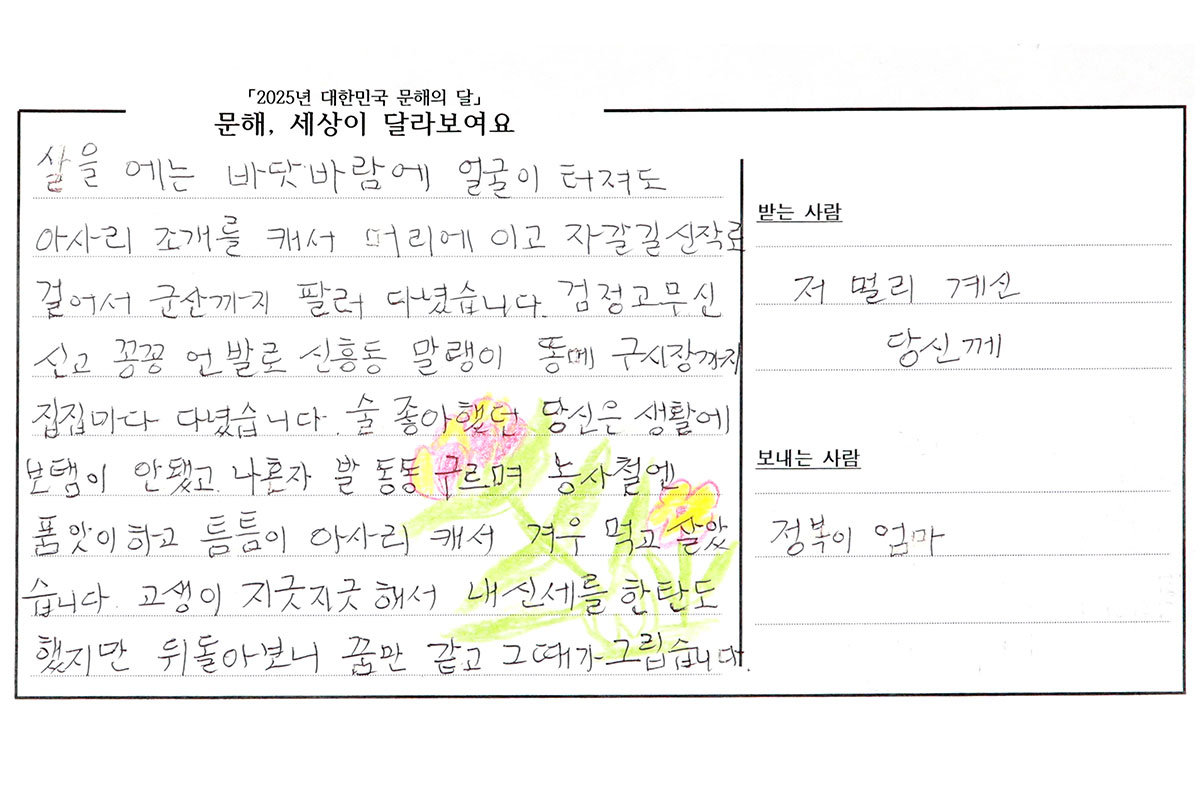 「2025년 대한민국 문해의 달」
문해, 세상이 달라보여요
살을 에는 바닷바람에 얼굴이 터져도
아사리 조개를 캐서 머리에 이고 자갈길 신작로
걸어서 군산까지 팔러 다녔습니다. 검정고무신
신고 꽁꽁 언 발로 신흥동 말랭이 똥메 구시장까지
집집마다 다녔습니다. 술 좋아했던 당신은 생활에
보탬이 안됐고 나혼자 발 동동 구르며 농사철엔
품앗이하고 틈틈이 아사리 캐서 겨우 먹고 살았
습니다. 고생이 지긋지긋해서 내신세를 한탄도
했지만 뒤돌아보니 꿈만 같고 그때가 그립습니다.
받는 사람
저 멀리 계신
당신께
보내는 사람
정복이 엄마